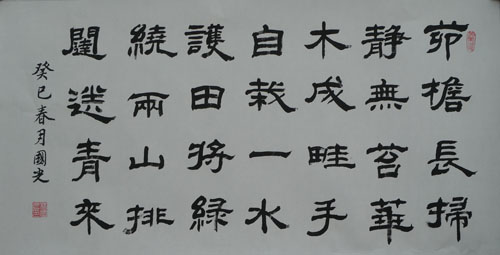 茆檐長掃
静無苔華
木成畦手
自栽一水
護田將緑
繞兩山排
闥送青來
癸巳春月國光